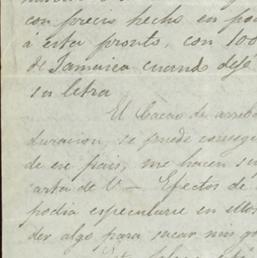 con precio hecho en
á esta pronto, con 100
de Jamaica cuando dejé
su letra
El Cacao de
duracion, se puede
de ese pais, me hacen
carta de V — Efectos de
podia especularse en ellos
der algo para sacar mis